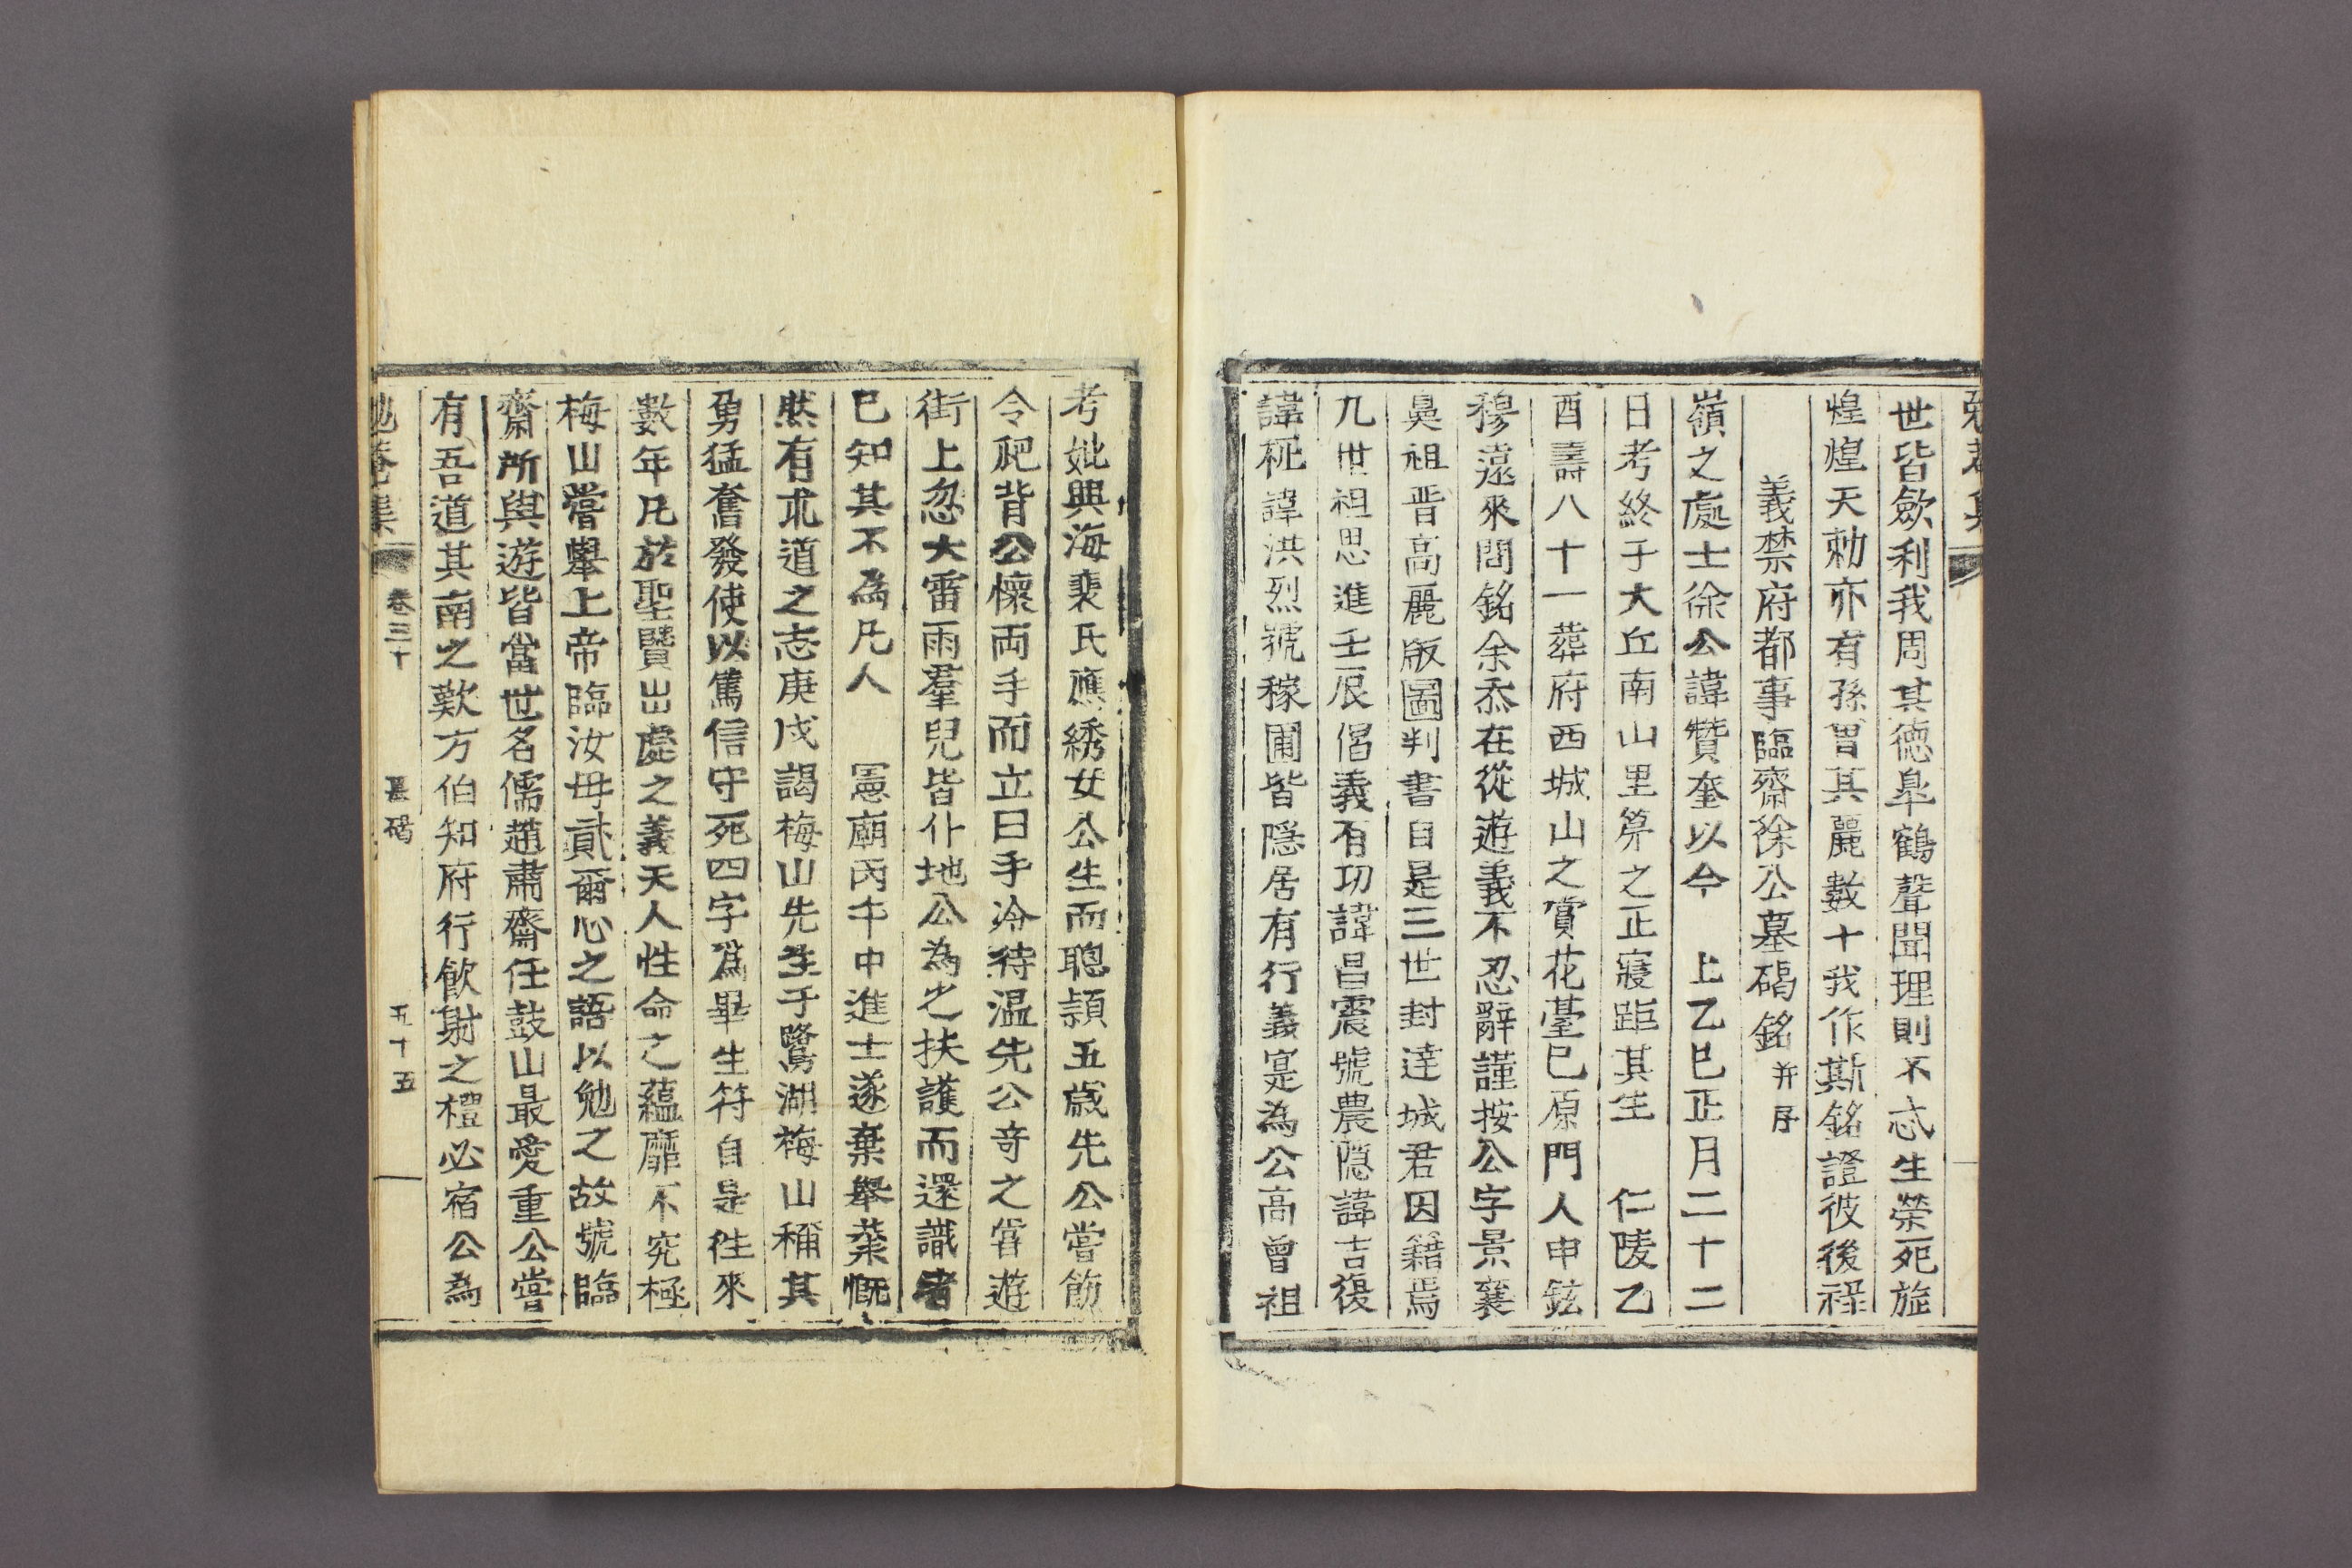 世皆歛利我周其德臯鶴聲聞理則不忒生榮死旌
煌煌天勅亦有孫曾其麗數十我作斯銘證彼後祿
義禁府都事臨齋徐公墓碣銘并序
嶺之處士徐公諱贊奎以今 上乙巳正月二十二
日考終于大丘南山里笄之正寢距其生 仁陵乙
酉壽八十一葬府西城山之賞花臺巳原門人申鉉
穆遠來問銘余忝在從遊義不忍辭謹按公字景襄
鼻祖晋高麗版圖判書自是三世封達城君因籍焉
九世祖思進壬辰倡義有功諱昌震號農隱諱吉復
諱柾諱洪烈號稼圃皆隱居有行義寔為公高曾祖
考妣興海裵氏應綉女公生而聰頴五歲先公嘗飭
令爬背公懷兩手而立曰手冷待温先公奇之甞遊
街上忽大雷雨羣兒皆仆地公為之扶護而還識者
已知其不為凡人 憲廟丙午中進士遂棄擧業慨
然有求道之志庚戌謁梅山先生于鷺湖梅山稱其
勇猛奮發使以篤信守死四字爲畢生符自是徃來
數年凡於聖賢出處之義天人性命之蘊靡不究極
梅山嘗擧上帝臨汝毋貳爾心之語以勉之故號臨
齋所與遊皆當世名儒趙肅齋任鼓山最愛重公嘗
有吾道其南之歎方伯知府行飮射之禮必宿公為
卷三十 墓碣 五十五